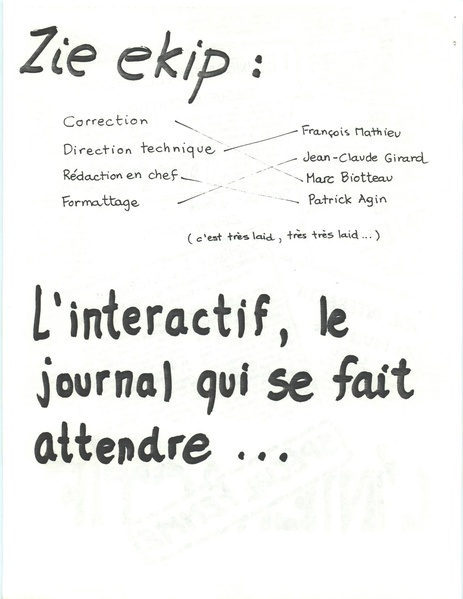 Zie ekip :
Correction
François Mathieu
Direction technique
Jean-Claude Girard
Rédaction en chef
Marc Biotteau
Formattage
Patrick Agin
(c'est très laid, très très laid...)
L'interactif, le
journal qui se fait
attendre ...